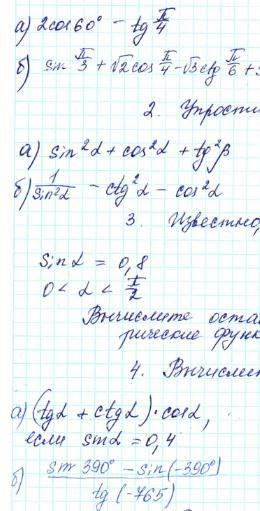 а) 2cos60° - tg π/4
б) sin π/3 + √2cos π/4 - √3 ctg π/6 +
2. Упрости
а) sin²α + cos²α + tg²β
б) 1/sin²α - ctg²α - cos²α
3. Известно,
sinα = 0,8
0 < α < π/2
Вычислите оста
рические функ
4. Вычислит
а) (tgα + ctgα)·cosα,
если sinα = 0,4
б) sin 390° - sin(-390°)
tg(-765)